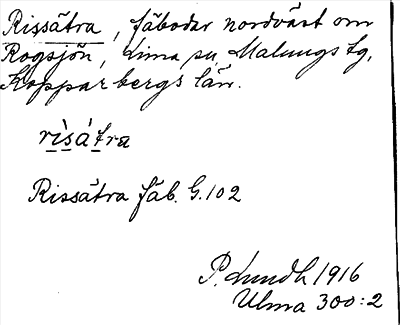 Rissätra, fäbodar nordväst om
Rogsjön, Lima sn, Malungs tg,
Kopparbergs län.
rìsátra
Rissätra fäb. G. 102
P. Lundh 1916
Ulma 300:2